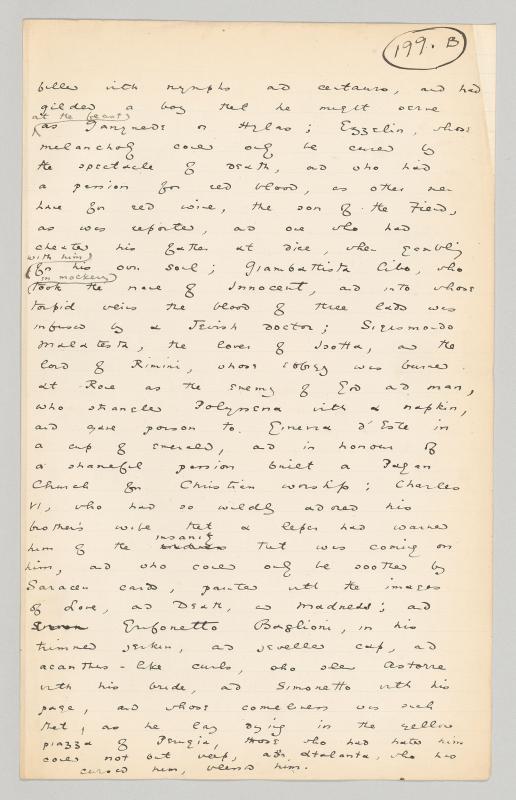 199. B
filled with nymphs and centaurs, and had
gilded a boy that he might serve
at the feast
as Ganymede or Hylas; Ezzelin, whose
melancholy could only be cured by
the spectacle of death, and who had
a passion for red blood, as other men
have for red wine, the son of the Fiend,
as was reported, and one who had
cheated his father at dice, when gambling
with him
for his own soul; Giambattista Cibo, who
in mockery
took the name of Innocent, and into whose
torpid veins the blood of three lads was
infused by a Jewish doctor; Sigismondo
Malatesta, the lover of Isotta, and the
lord of Rimini, whose effigy was burned
at Rome as the enemy of God and man,
who strangled Polyssena with a napkin,
and gave poison to Ginevra d'Este in
a cup of emerald, and in honour of
a shameful passion built a Pagan
Church for Christian worship; Charles
VI, who had so wildly adored his
brother's wife that a leper had warned
insanity
him of the that was coming on
him, and who could only be soothed by
Saracen cards, painted with the images
of Love, and Death, and Madness; and
Grifonetto Baglioni, in his
trimmed jerkin, and jewelled cap, and
acanthus-like curls, who slew Astorre
with his bride, and Simonetto with his
page, and whose comeliness was such
that, as he lay dying in the yellow
piazza of Perugia, those who had hated him
could not but weep, and Atalanta, who had
cursed him, blessed him.